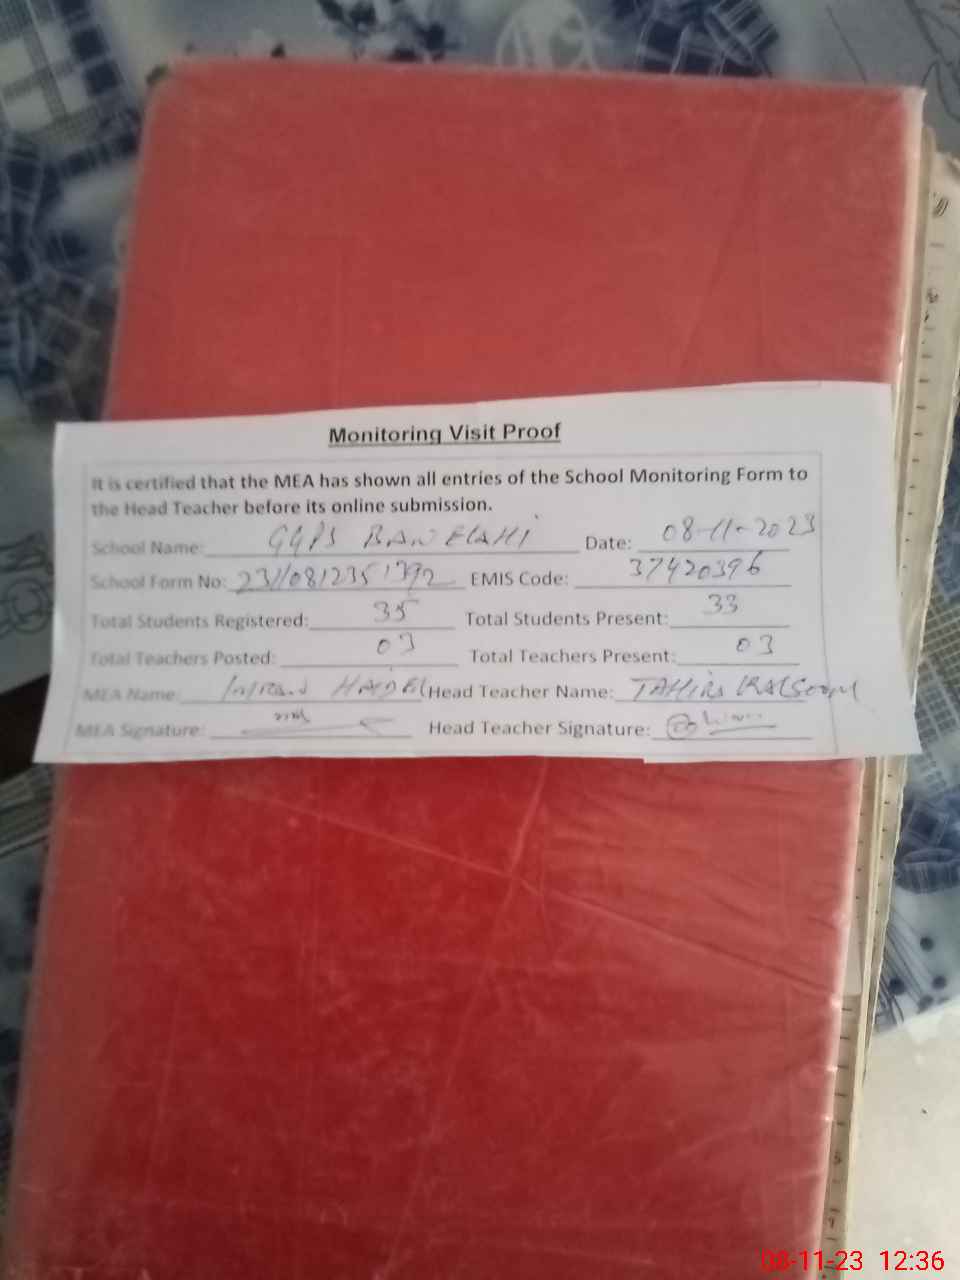 Monitoring Visit Proof
It is certified that the MEA has shown all entries of the School Monitoring Form to
the Head Teacher before its online submission.
School Name: GGPS BAN ELAHI Date: 08-11-2023
School Form No: 23110812351392 EMIS Code: 37420396
Total Students Registered: 35 Total Students Present: 33
Total Teachers Posted: 03 Total Teachers Present: 03
MEA Name: Imran HAIDER Head Teacher Name: TAHIRA KALSOOM
MEA Signature: Head Teacher Signature:
08-11-23 12:36